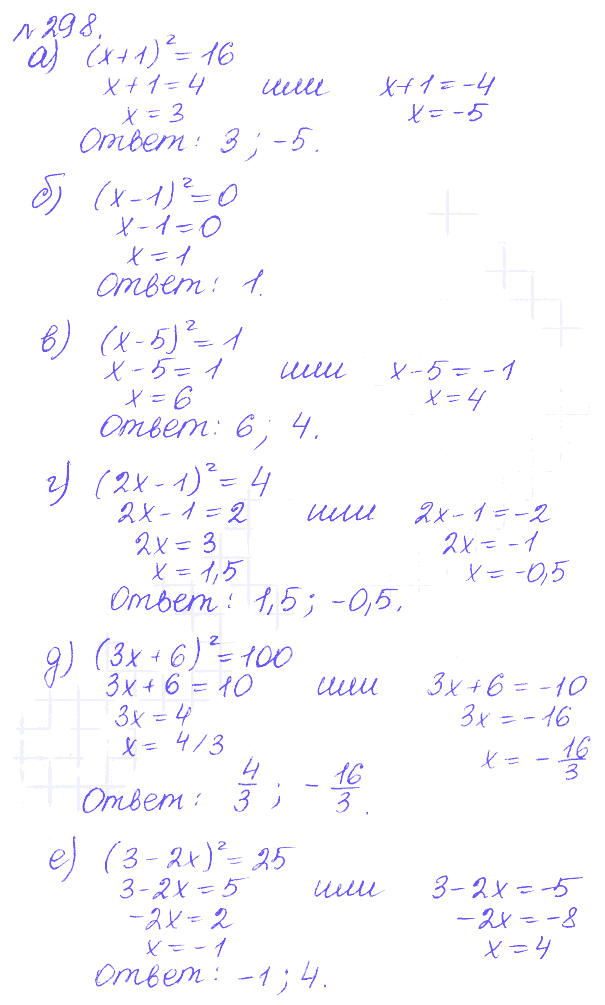 №298.
а) (x+1)² = 16
x+1=4 или x+1=-4
x=3 x=-5
Ответ: 3; -5.
б) (x-1)² = 0
x-1=0
x=1
Ответ: 1.
в) (x-5)² = 1
x-5=1 или x-5=-1
x=6 x=4
Ответ: 6; 4.
г) (2x-1)² = 4
2x-1=2 или 2x-1=-2
2x=3 2x=-1
x=1,5 x=-0,5
Ответ: 1,5; -0,5.
д) (3x+6)² = 100
3x+6=10 или 3x+6=-10
3x=4 3x=-16
x=4/3 x=-16/3
Ответ: 4/3; -16/3.
е) (3-2x)² = 25
3-2x=5 или 3-2x=-5
-2x=2 -2x=-8
x=-1 x=4
Ответ: -1; 4.